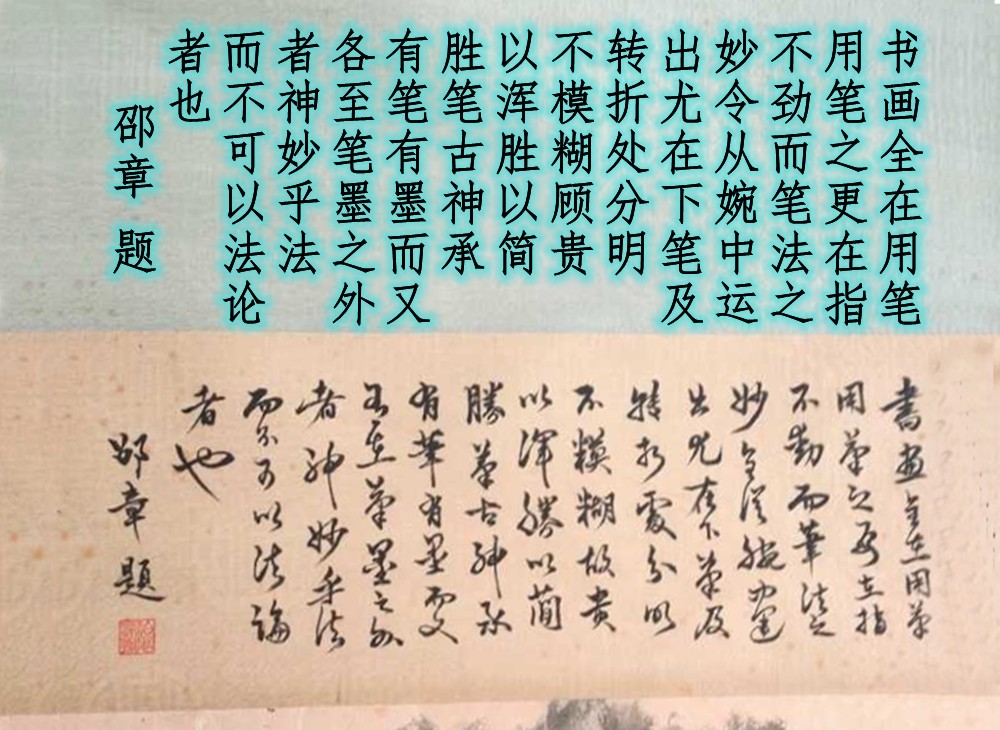 书画全在用笔
用笔之更在指
不劲而笔法之
妙令从婉中运
出尤在下笔及
转折处分明
不模糊顾贵
以浑胜以简
胜笔古神承
有笔有墨而又
各至笔墨之外
者神妙乎法
而不可以法论
者也
邵章 题
書畫全在用筆
用筆之在指
不動而筆法之
妙全從腕中運
出尤在下筆及
轉折處分明
不糢糊故貴
以渾勝以簡
勝筆古神
有筆有墨而又
在筆墨之外
者神妙乎法
而不可以法論
者也
邵章 題